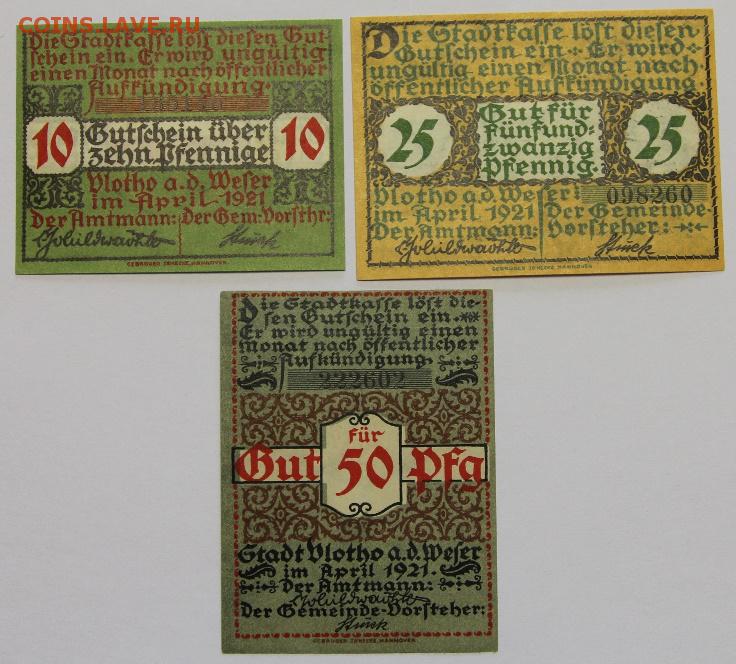 COINS.LAVE.RU
Die Stadtkasse löst diesen Gut
schein ein. Er wird ungültig
einen Monat nach öffentlicher
Aufkündigung.
10 Gutschein über 10
zehn Pfennige
Vlotho a.d. Weser
im April 1921
Der Amtmann: Der Gem. Vorsthr:
GEBRÜDER JÄNECKE, HANNOVER
Die Stadtkasse löst diesen
Gutschein ein. Er wird
ungültig einen Monat nach
öffentlicher Aufkündigung
25 Gut für 25
fünfund-
zwanzig
Pfennig.
Vlotho a.d. Weser: 098260
im April 1921 Der Gemeinde-
Der Amtmann: Vorsteher:
GEBRÜDER JÄNECKE, HANNOVER
Die Stadtkasse löst die-
sen Gutschein ein.
Er wird ungültig einen
Monat nach öffentlicher
Aufkündigung.
222602
für
Gut 50 Pfg
Stadt Vlotho a.d. Weser
im April 1921.
Der Amtmann:
Der Gemeinde-Vorsteher:
GEBRÜDER JÄNECKE, HANNOVER